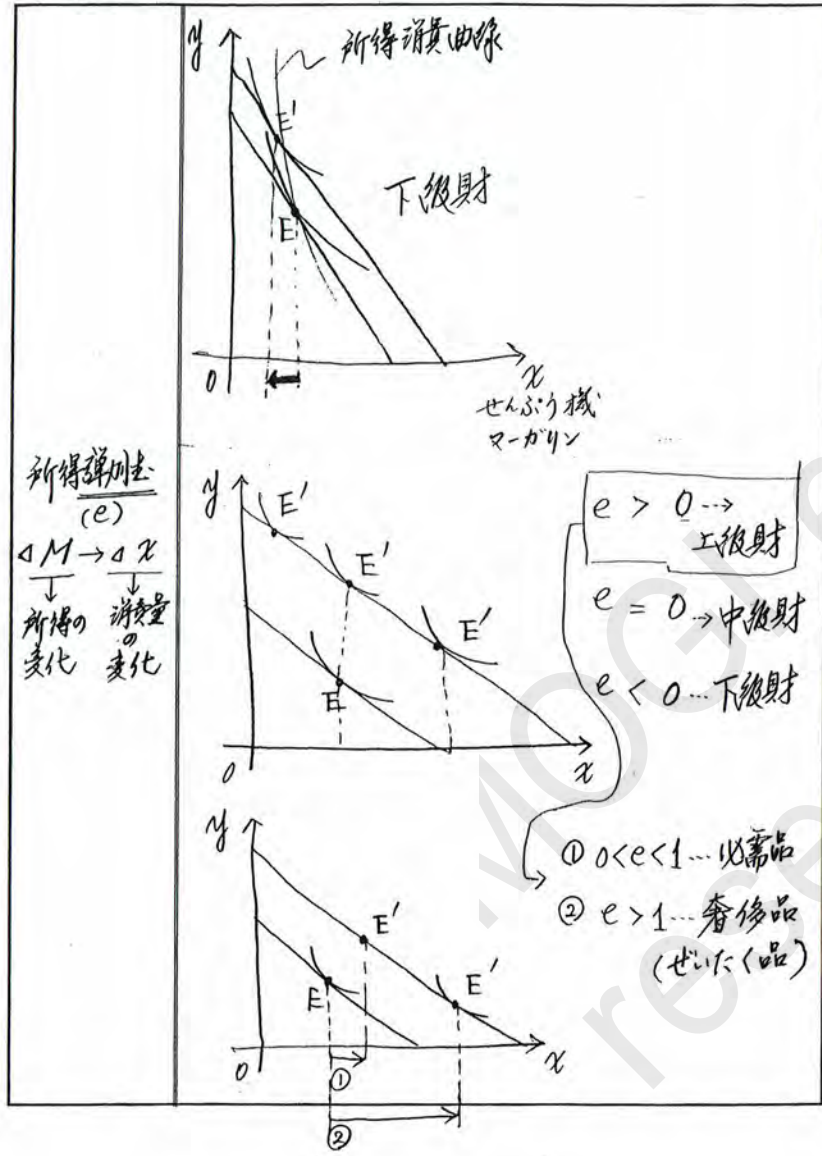 所得弾力性
(e)
⊿M→⊿x
↓ ↓
所得の 消費量
変化 の
変化
y
所得消費曲線
E'
下級財
E
0
x
せんぷう機
マーガリン
y
E'
E'
E'
E
0
x
e > 0 …→
上級財
e = 0 …→中級財
e < 0 …下級財
y
E'
E
E'
0
x
①
②
① 0<e<1…必需品
② e>1…奢侈品
(ぜいたく品)
MOGI
rese